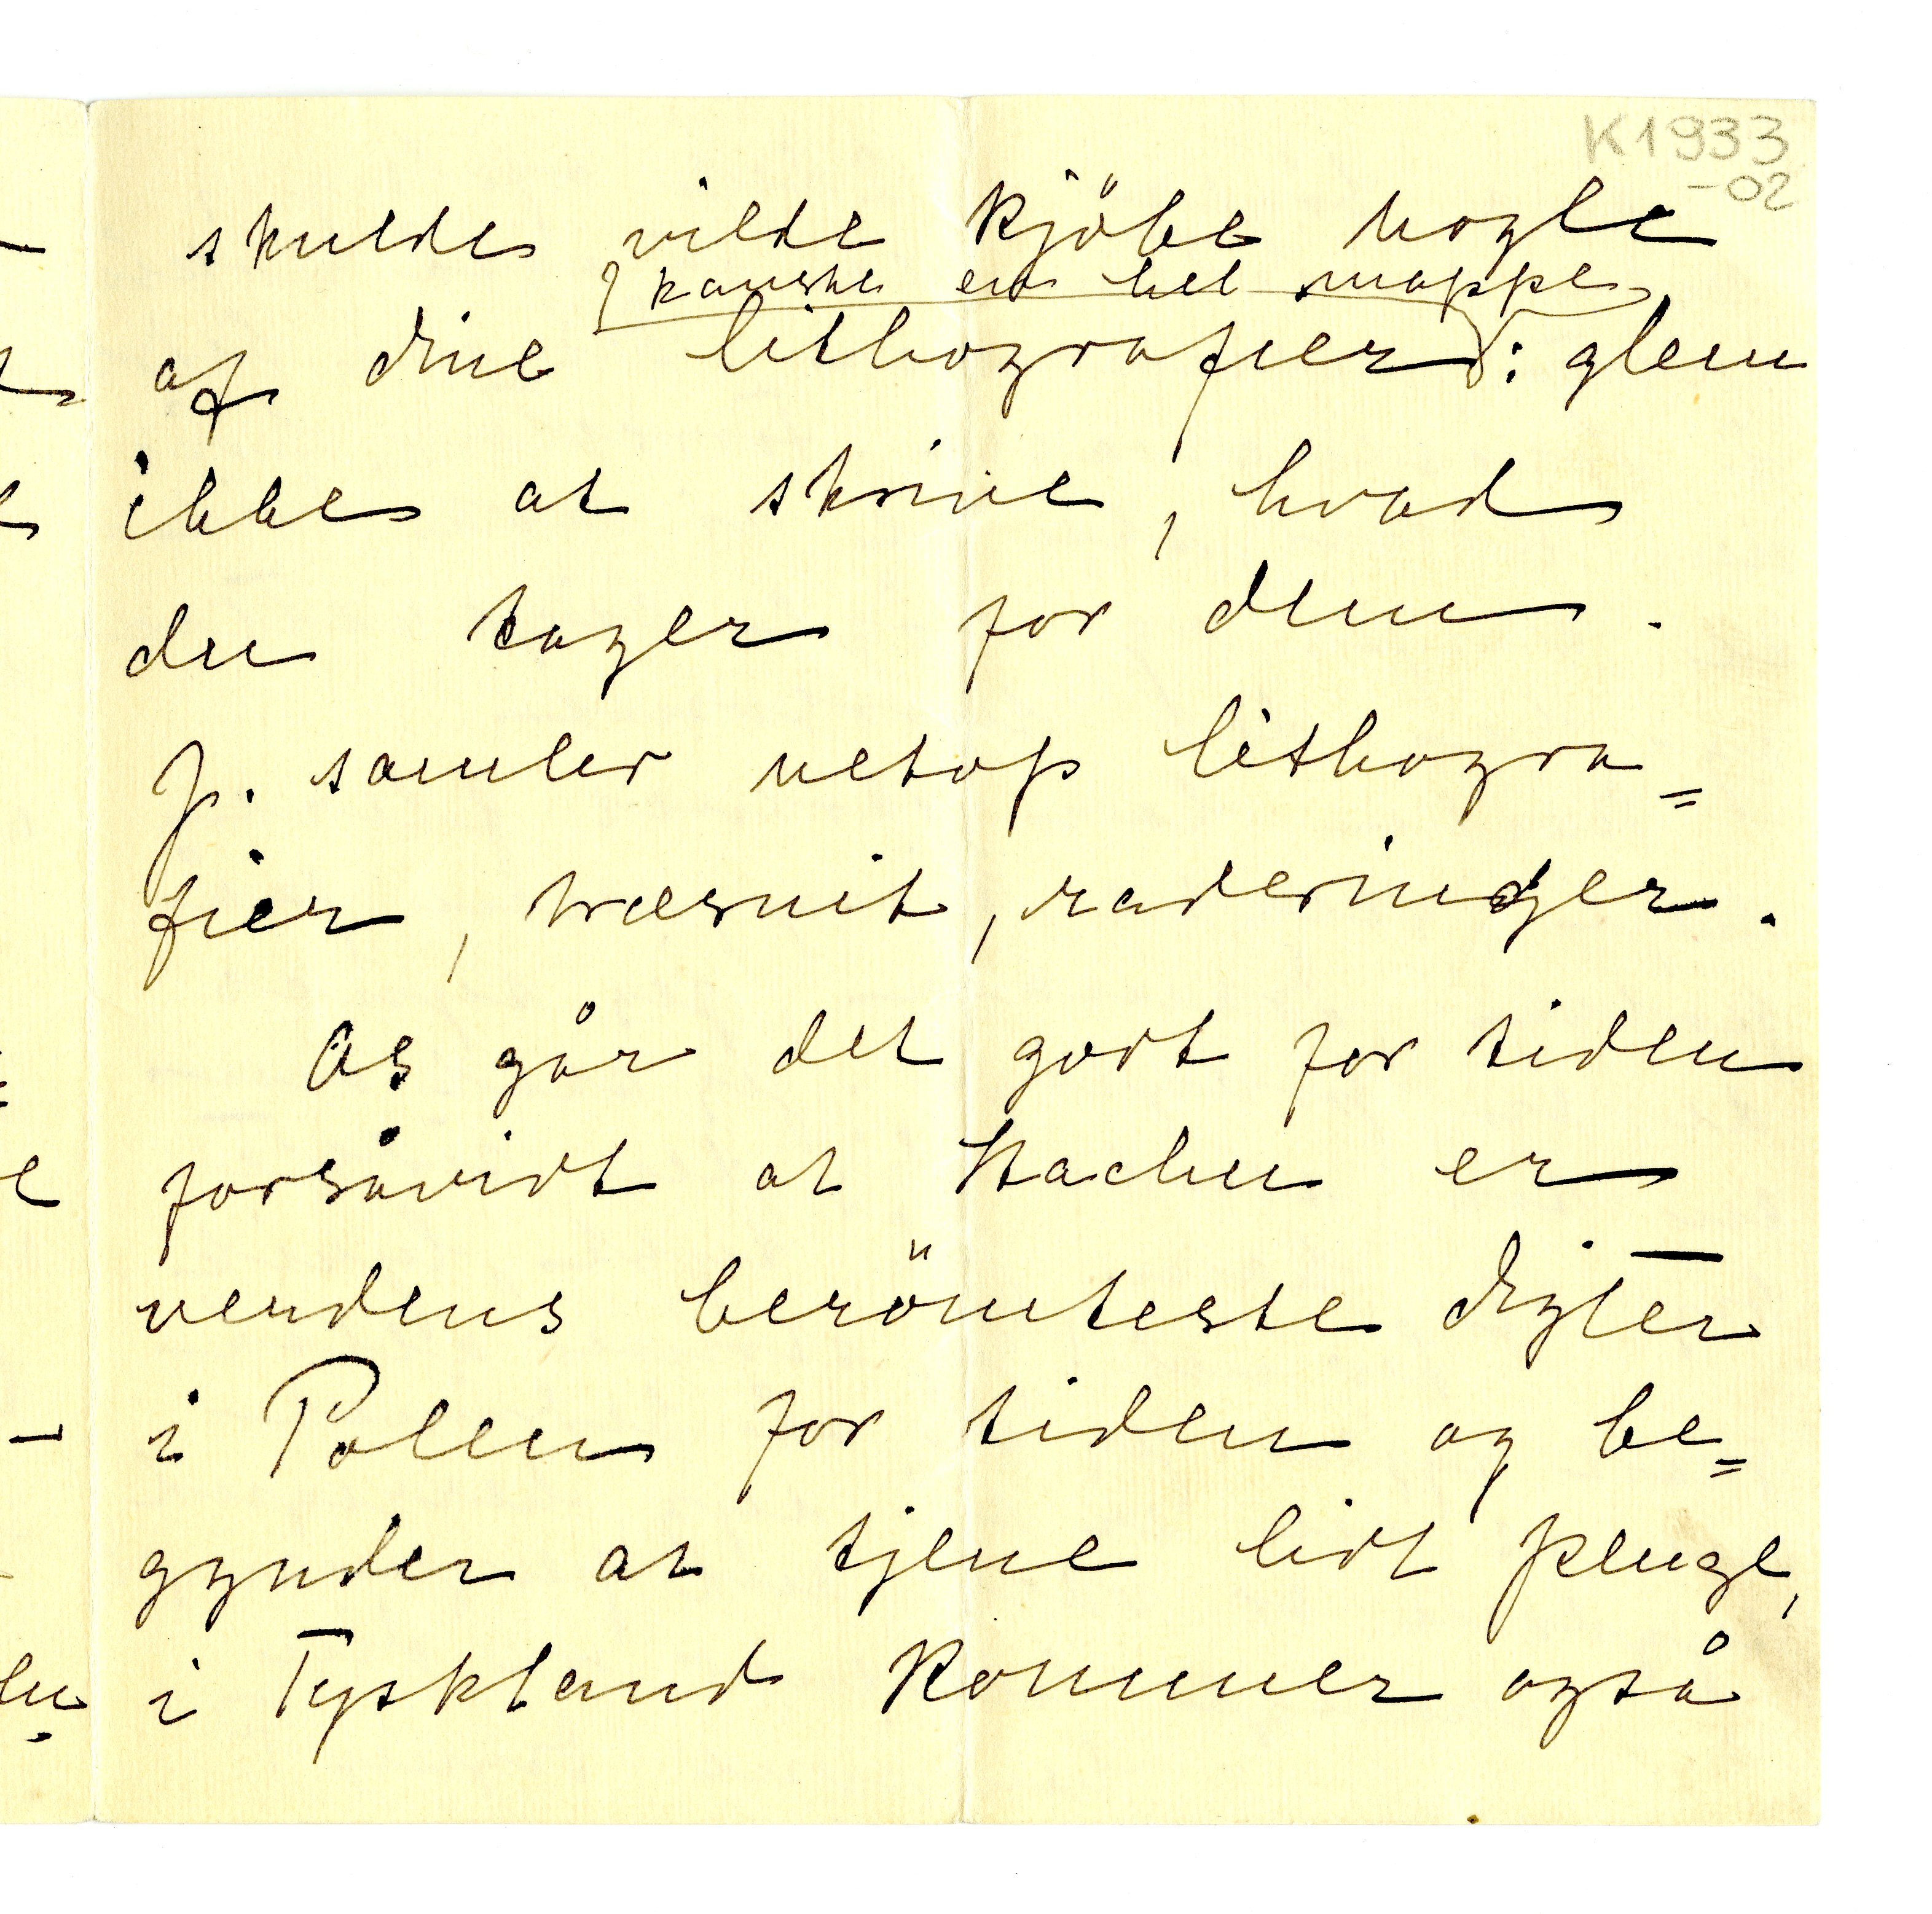 K1933
-02
skulde vilde kjöbe nogle
kanske en hel mappe
af dine lithografier : glem
ikke at skrive, hvad
du tager for dem.
J. samler netop lithogra=
fier, træsnit, raderinger.
Os går det godt for tiden
forsåvidt at Stachu er
verdens berömteste digter
i Polen for tiden og be=
gynder at tjene lidt penge,
i Tyskland kommer også